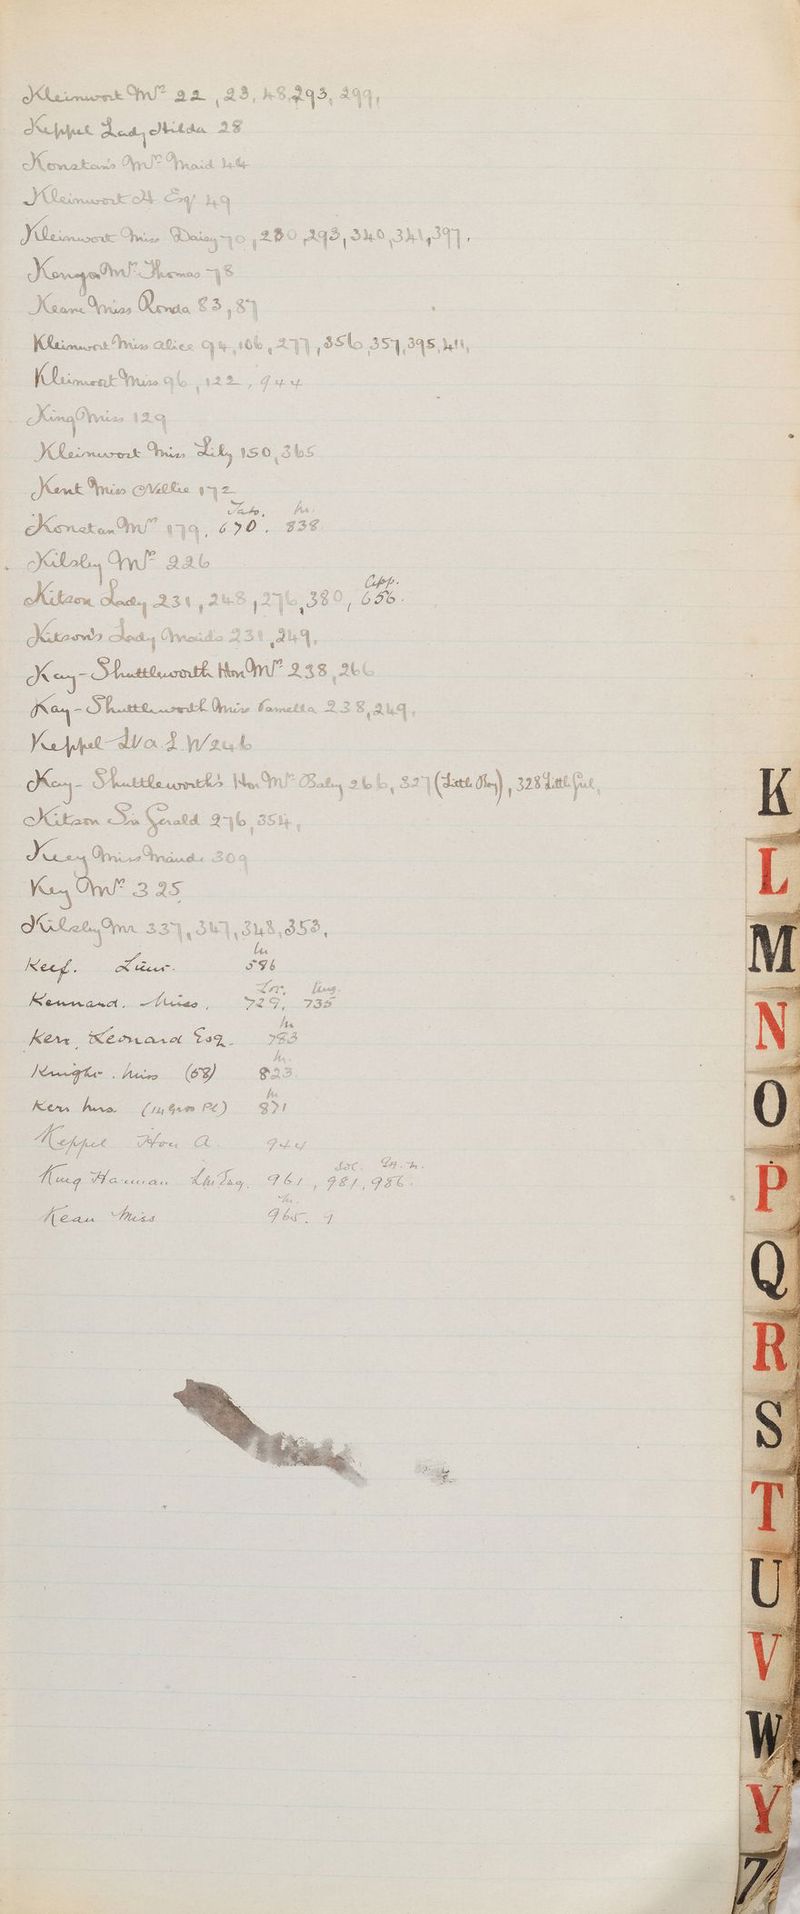 Kleinwort Mrs 22, 23, 48, 293, 299,
Keppel Lady Hilda 28
Konstan's Mrs Maid 44
Kleinwort H Esqr 49
Kleinwort Miss Daisy 70, 280, 293, 340, 341, 397.
Mrs Thomas 78
Keane Miss Ronda 83, 87
Kleinwort Miss Alice 94, 106, 277, 356, 357, 395, 411,
Kleinwort Miss 96, 122, 944
King Miss 129
Kleinwort Miss Lily 150, 365
Kent Miss Nellie 172
Konstan Mrs 179, 670. 838
Kilsby Mrs 226
App.
Kitson Lady 231, 248, 276, 380, 656.
Kitson's Lady Maids 231, 249,
Kay-Shuttleworth Hon Mrs 238, 266
Kay-Shuttleworth Miss Pamella 238, 249,
Keppel 246
Kay-Shuttleworth's Hon Mrs Baby 266, 327 (Little Boy), 328 Little Girl,
Kitson Sir Gerald 276, 354,
Miss Maude 309
Key Mrs 325
Kilsby Mr 337, 347, 348, 353,
Keef. Lieut. 586
Kennard. Miss. 729, 735
Kerr, Leonard Esq. 783
Knight. Miss (58) 823
Kerr Mrs (14 Gros Pl) 871
Keppel Hon A 944
King Harman Esq. 961, 981, 986.
Kean Miss 965.
K
L
M
N
O
P
Q
R
S
T
U
V
W
Y